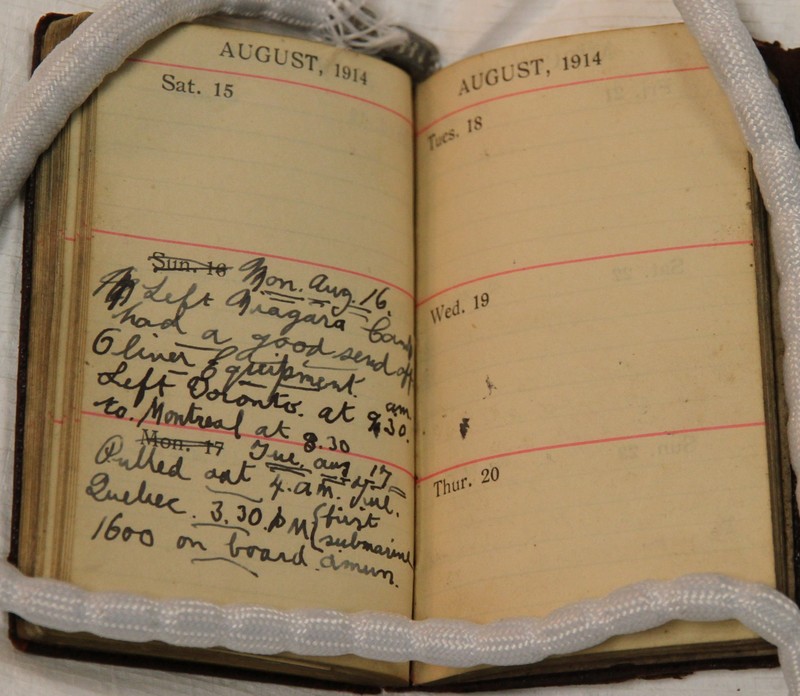 AUGUST, 1914
Sat. 15
Sun. 16 Mon. Aug. 16.
Left Niagara Camp
had a good send off
Oliver Equipment.
Left Toronto. at 9.30. am
to. Montreal at 8.30
Mon. 17 Tue. Aug 17
Pulled out 4. a.m.
Quebec. 3.30. p M (first
(submarine
1600 on board amun.
AUGUST, 1914
Tues. 18
Wed. 19
Thur. 20